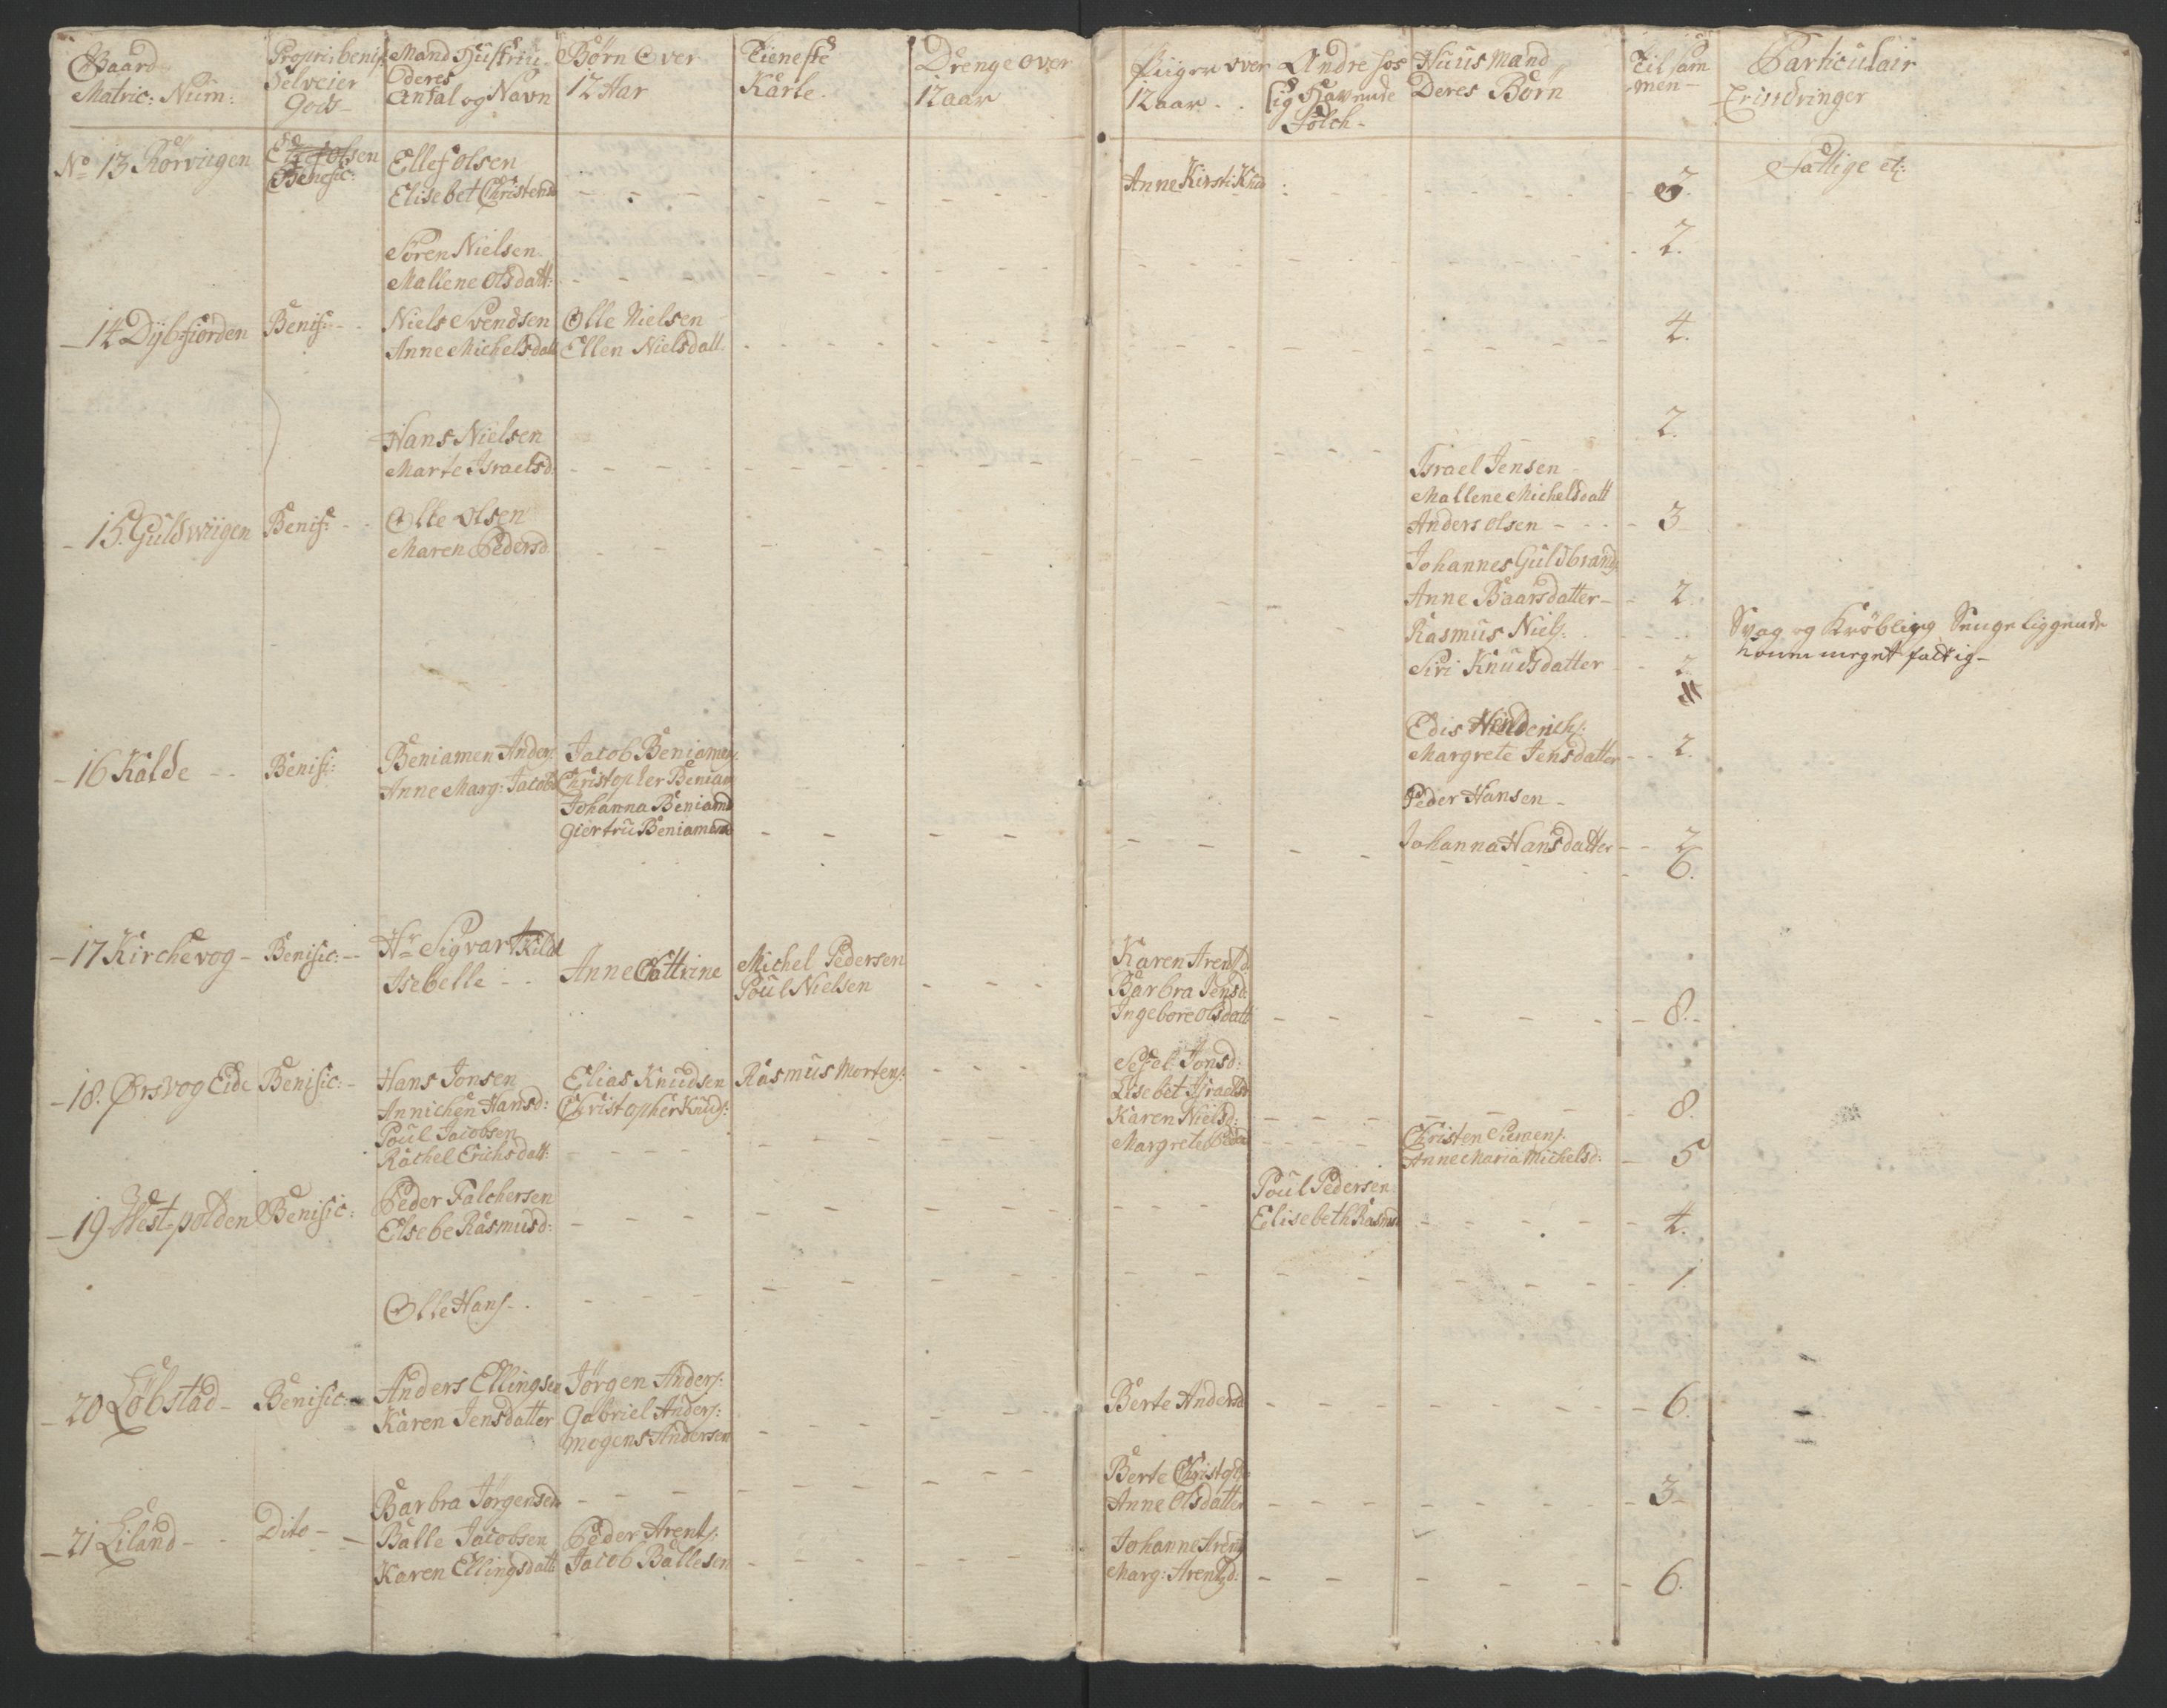 Gaard
Matric: Num:
Propri: benif:
Selveier
Gods
Mand Hustru
Deres
Antal og Navn
Børn Over
12 Aar
Tieneste
Karle.
Drenge over
12 aar
Piiger over
12 aar
Andre hos
sig Havende
Folch
Huusmand
Deres Børn
Til sam
men
Particulair
Erindringer
No 13 Rørviigen
Ellef Olsen
Benefic:
Ellef Olsen
Elisebet Christensd
Anne Kirsti Knud
3.
Fattige etc:
Søren Nielsen
Mallene Olsdatt:
2.
14 Dybfiorden
Benif:
Niels Svendsen
Anne Michelsdatt
Olle Nielsen
Ellen Nielsdatt
4.
Hans Nielsen
Marte Israelsd.
2.
15. Guldwiigen
Benif:
Olle Olsen
Maren Pedersd.
Israel Jensen
Mallene Michelsdatt
Anders Olsen
3
Johannes Guldbrands:
Anne Baarsdatter
2
Rasmus Niels:
Siri Knudsdatter
2
Svag og Krøbling Senge liggende
meget fattig
Edis Henderichs:
Margrete Jensdatter
2.
Peder Hansen
Johanna Hansdatter
2
16 Kalde
Benif:
Beniamen Anders:
Anne Marg: Jacobsd
Jacob Beniamens:
Christopher Beniam
Johanna Beniamd
Giertru Beniamend
6.
17 Kirchevog
Benific:
Hr Sigvart Kildal
Isebelle
Anne Cattrine
Michel Pedersen
Poul Nielsen
Karen Arentzd
Barbra Jensd:
Ingebore Olsdatt
8.
18. Ørsvog Eide
Benific:
Hans Jonsen
Annichen Hansd:
Elias Knudsen
Christopher Knuds:
Rasmus Mortens:
Sessel Jonsd:
Lisebet Israelsd
Karen Nielsd:
8.
Poul Jacobsen
Rachel Erichsdatt:
Margrete Pedersd
Christen Siemens:
Anne Maria Michelsd:
5
19 West-polden
Benific:
Peder Falchersen
Elsebe Rasmusd:
Poul Pedersen
Elisebeth Rasmusd
4.
Olle Hans:
1.
20 Løbstad
Benific:
Anders Ellingsen
Karen Jensdatter
Jørgen Anders:
Gabriel Anders:
Mogens Andersen
Berte Andersd
6.
Barbra Jørgensd
Berte Christophs
Anne Olsdatter
3
21 Liland
Dito
Balle Jacobsen
Karen Ellingsdatt
Peder Arents:
Jacob Ballesen
Johanne Arentz
Marg: Arentzd:
6.